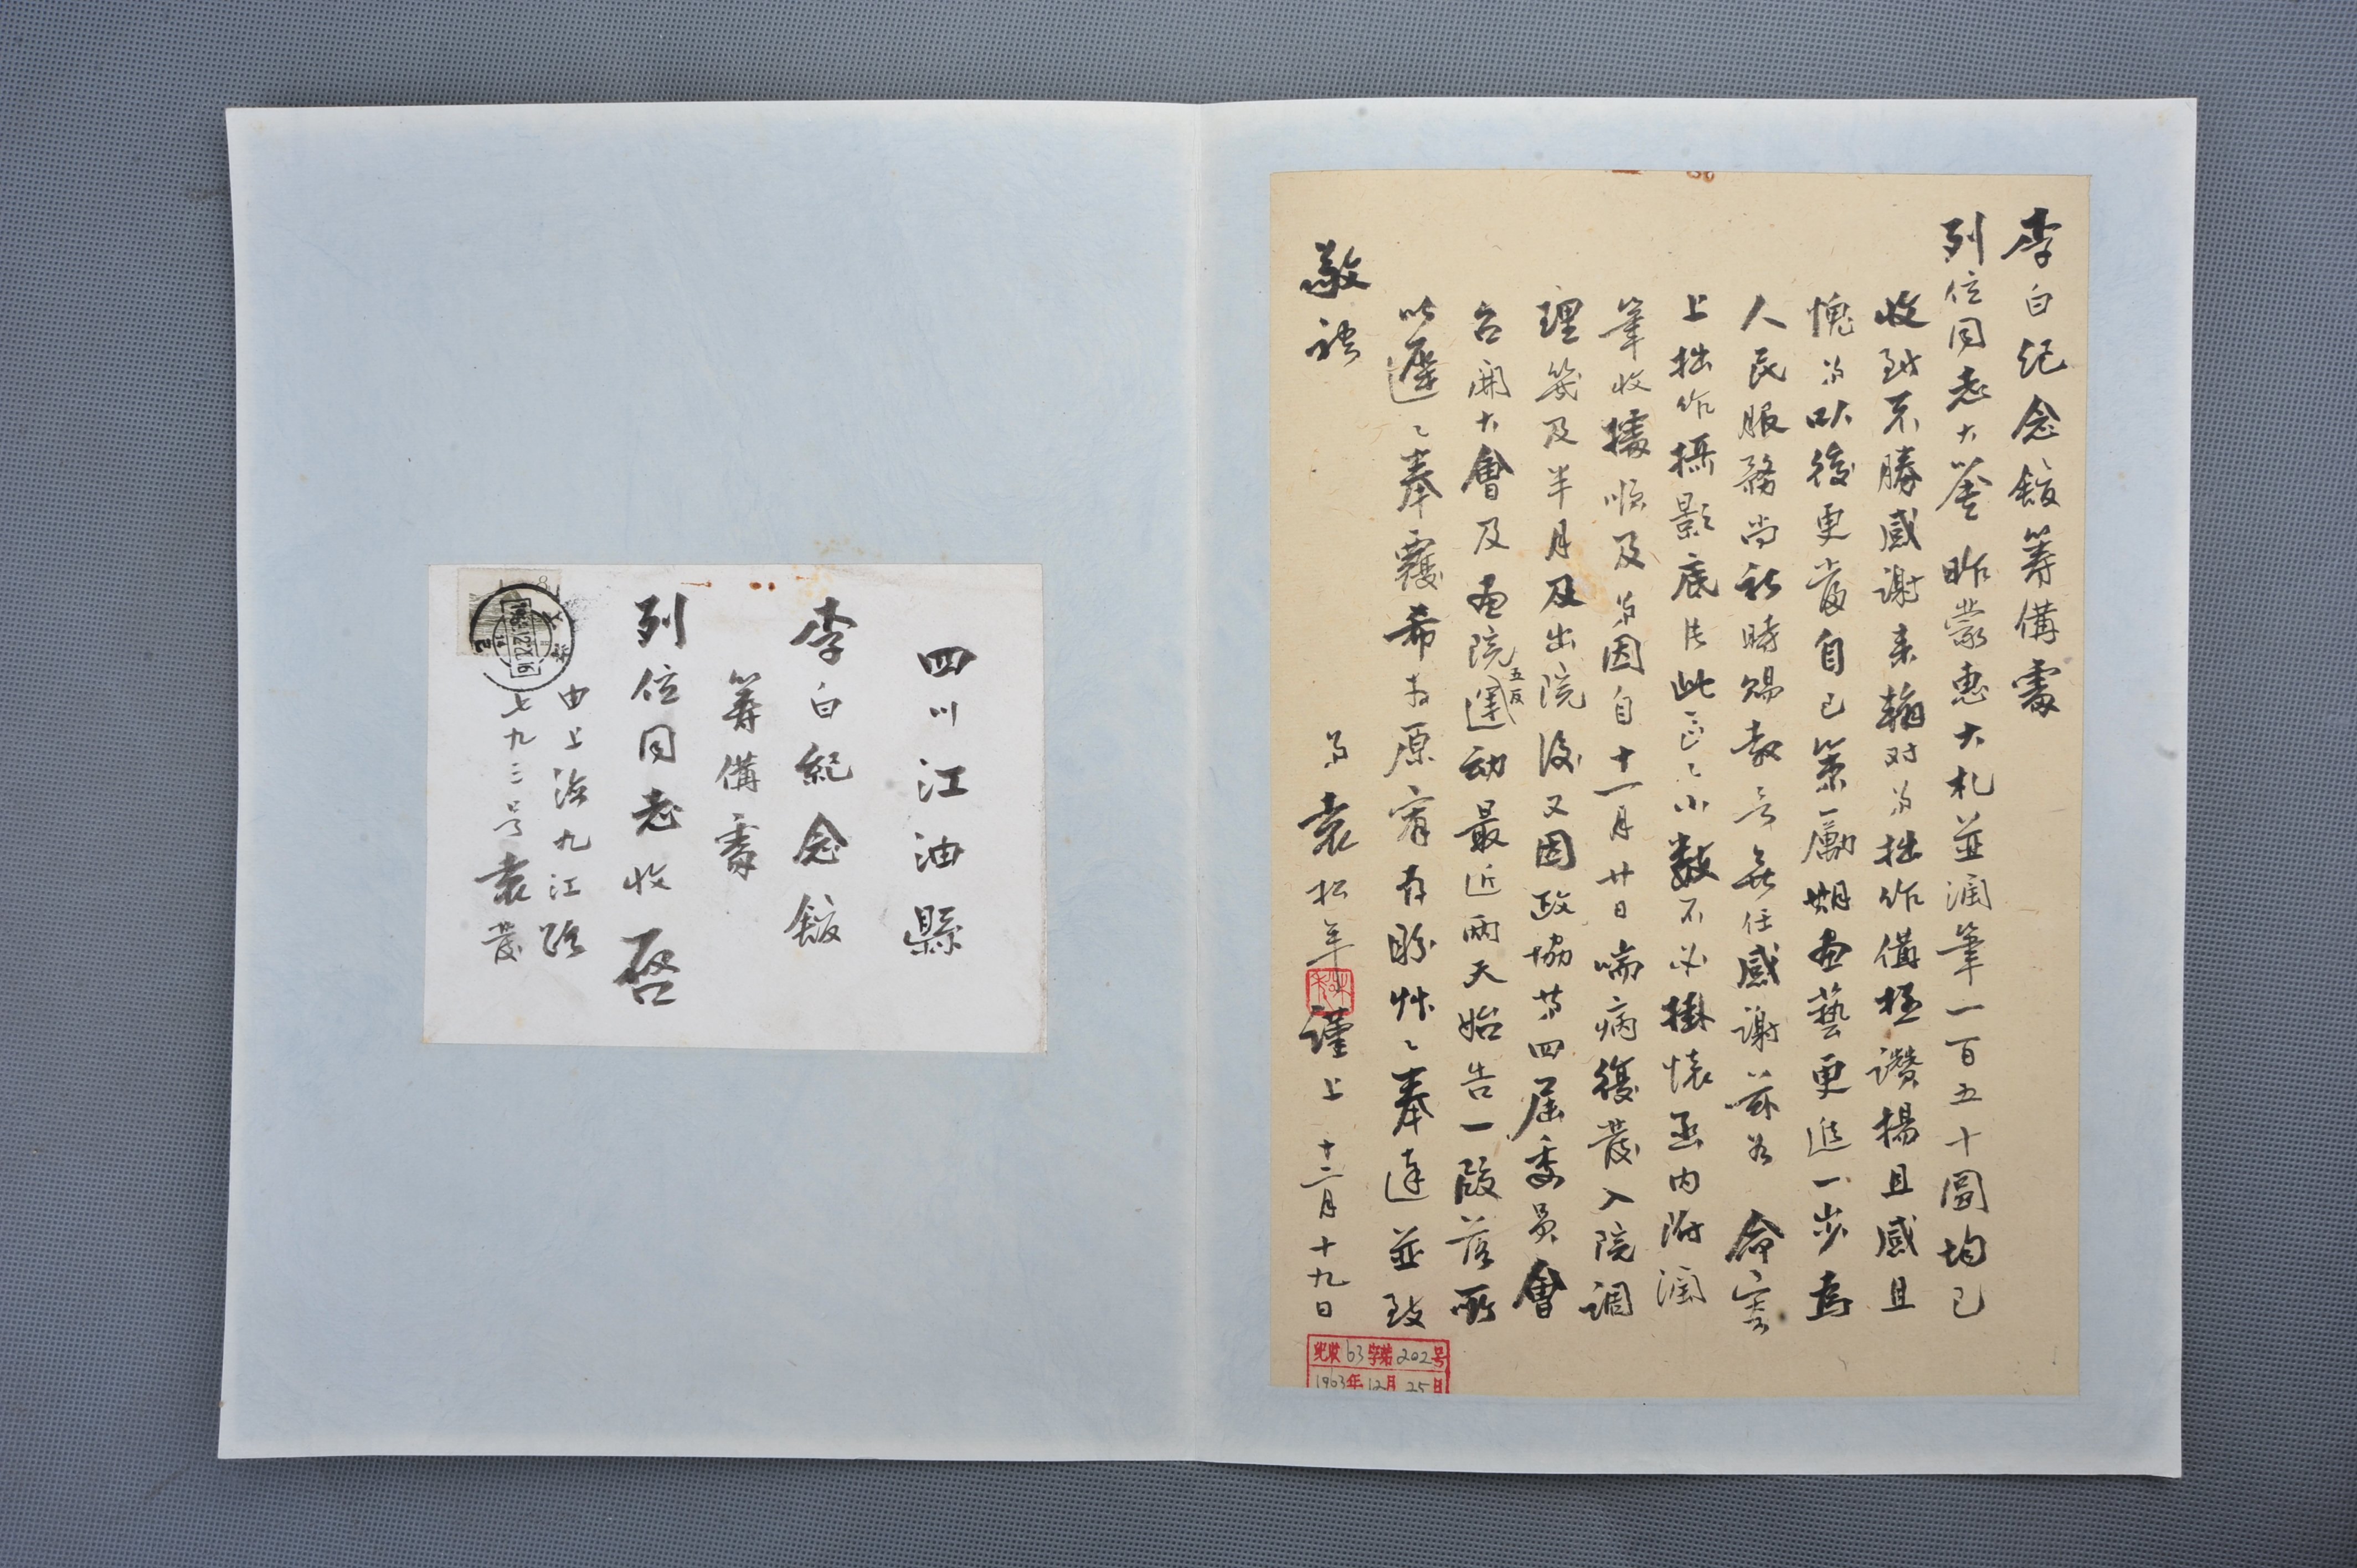 李白纪念館筹備處
列位同志大鉴昨蒙惠大札並润筆一百五十圆均已
收到不勝感谢来翰对弟拙作備極讚揚且感且
愧弟以後更當自己策勵期画藝更進一步為
人民服務尚祈時賜教言無任感谢兹为命寄
上拙作攝影底片此區区小数不必掛懐函内附润
筆收據順及弟因自十一月廿日喘病復發入院調
理幾及半月及出院後又因政協第四届委員會
召開大會及画院五反運动最近兩天始告一段落所
以遲遲奉覆希求原宥存盼艸艸奉達並致
敬礼
弟袁松年謹上 十二月十九日
纪收63字第202号
1963年12月25日
四川江油縣
李白紀念館
筹備處
列位同志收啓
由上海九江路
七九三号袁發
8